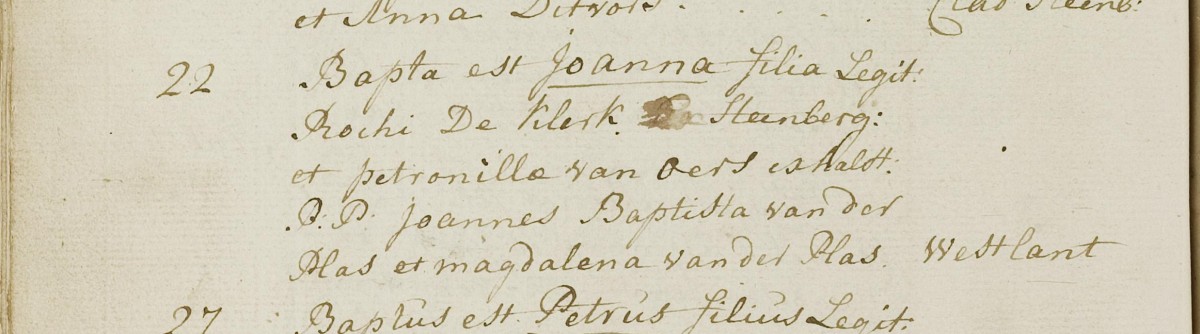 et Anna Ditvors. Steenb:
22 Bapta est Joanna filia Legit:
Rochi De Klerk. Steenberg:
et petronillæ van Oers exhaldt:
P: P. Joannes Baptista vander
Plas et magdalena vander Plas. Westlant
27 Baptus est Petrus filius Legit: